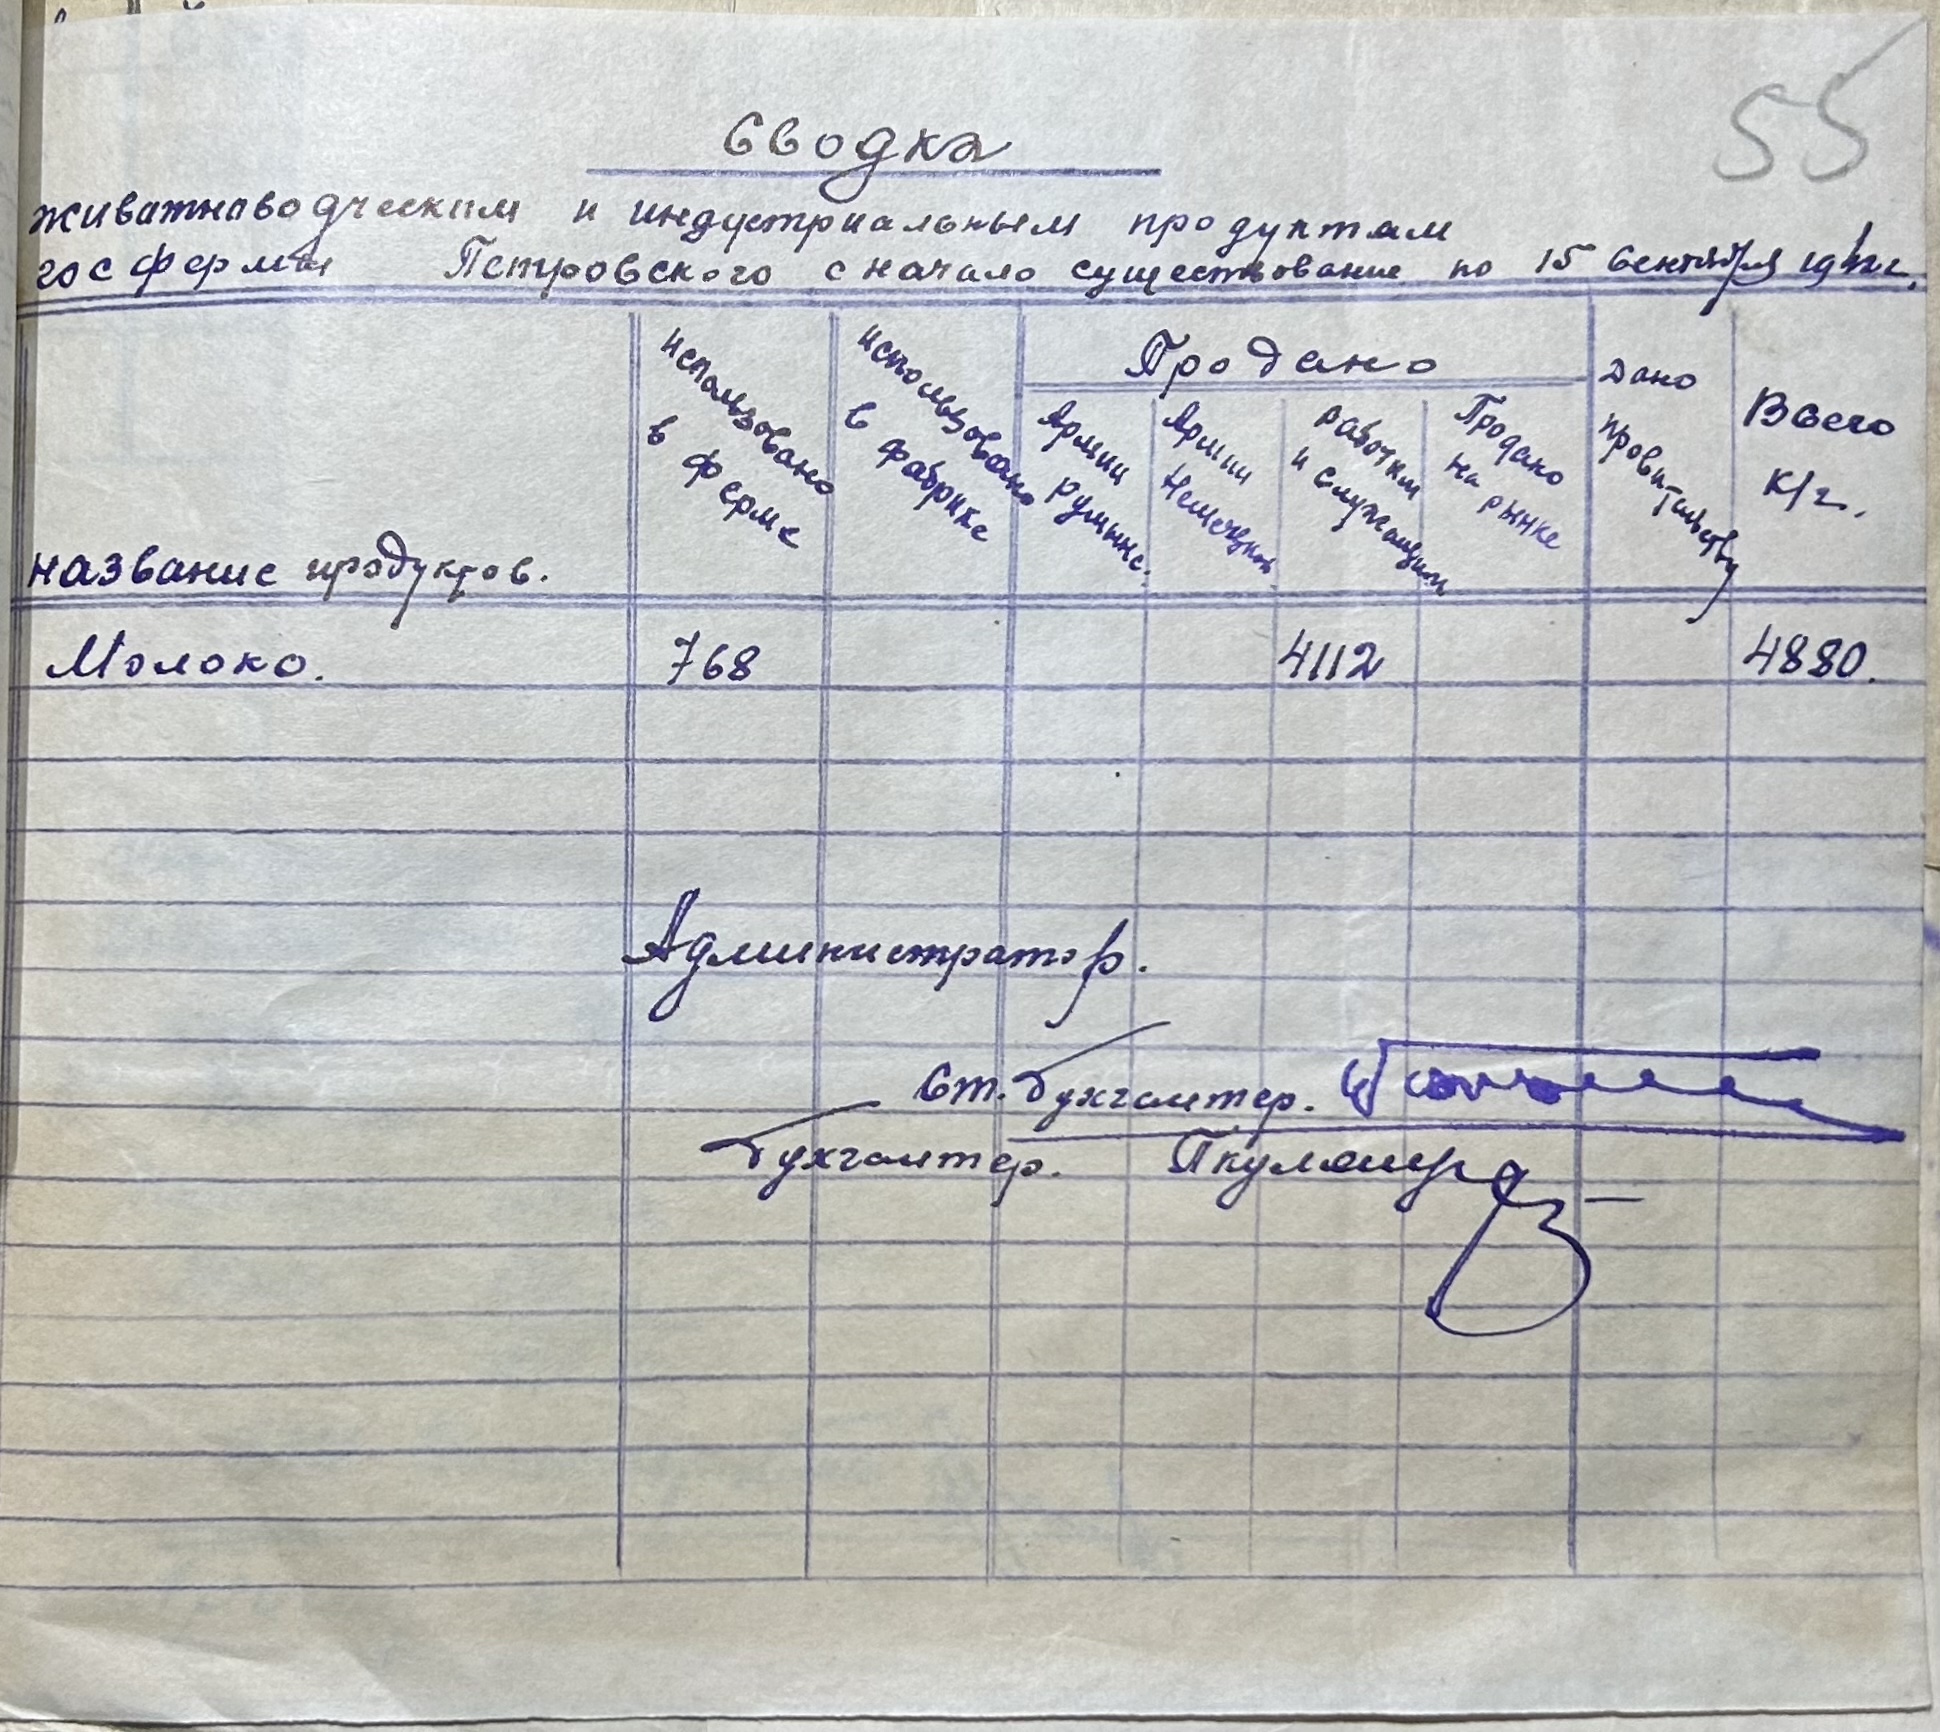 55
Сводка
живатноводческим и индустриальным продуктам
госфермы Петровского с начало существование по 15 Сентября 1942г.
название продуктов.
использовано
в ферме
использовано
в фабрике
Продано
Армии
румынс.
Армии
Немецкой
работим
и служащим
Продано
на рынке
Дано
провительству
Всего
к/г.
Молоко. 768 4112 4880.
Администратор.
Ст. бухгалтер.
бухгалтер.